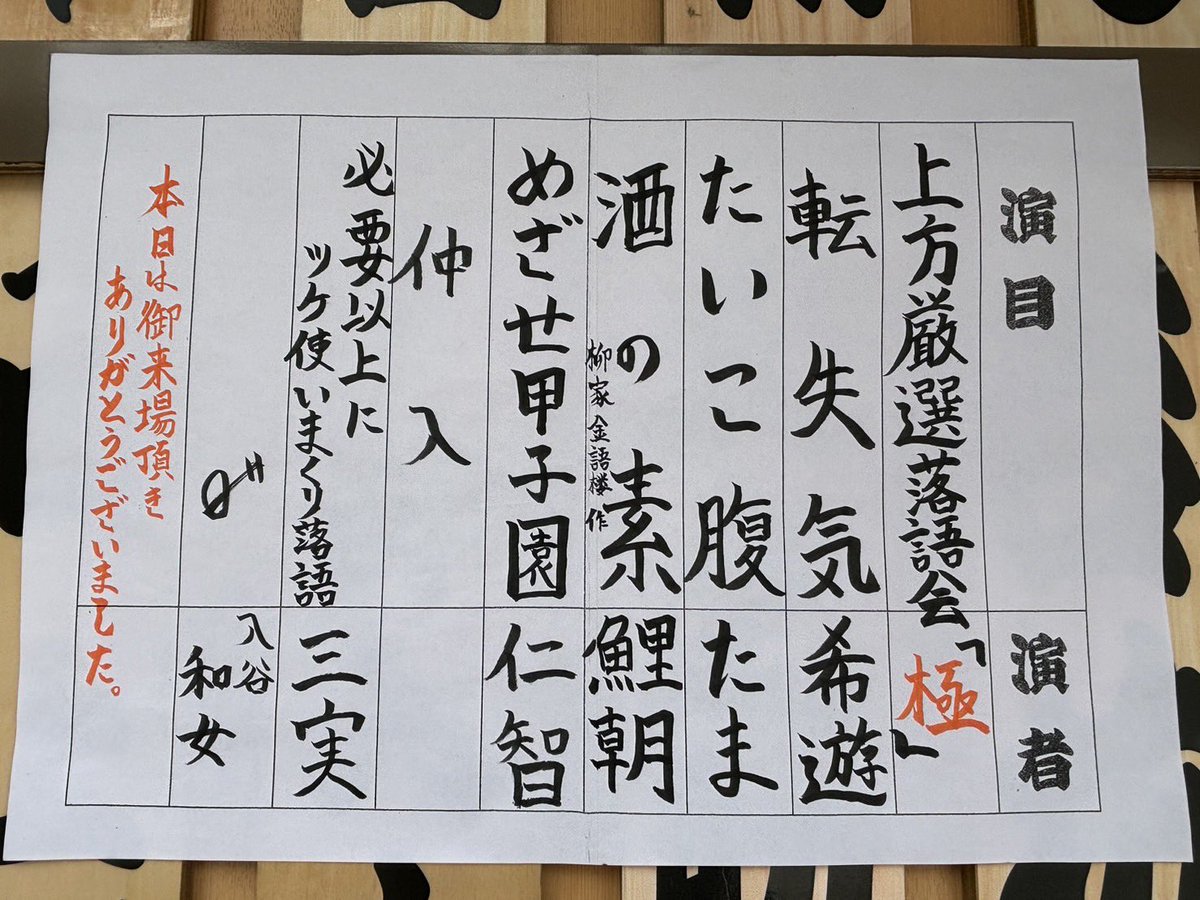 演目
演者
上方厳選落語会「極」
転失気
希遊
たいこ腹
たま
酒の素
柳家金語楼作
鯉朝
めざせ甲子園
仁智
仲入
必要以上に
ツケ使いまくり落語
三実
〃
入谷
和女
本日は御来場頂き
ありがとうございました。